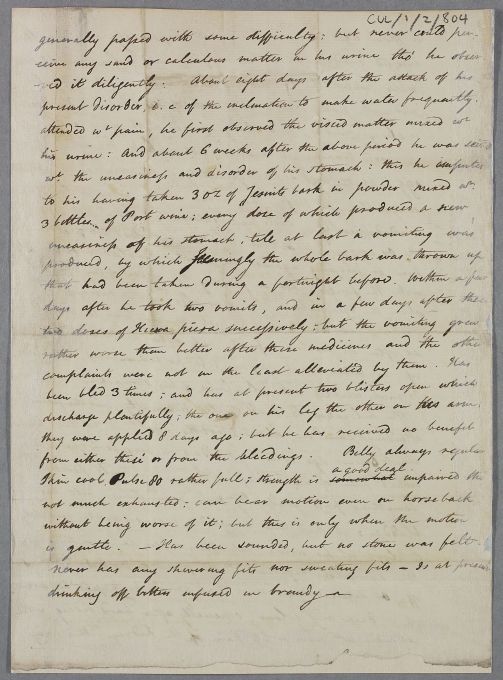 CUL/1/2/804
generally passed with some difficulty; but never could per-
ceive any sand or calculous matter in his urine tho' he obser
-ved it diligently. About eight days after the attack of his
present disorder, i.e of the inclination to make water frequently.
attended wt pain, he first observed the viscid matter mixed wt
his urine: And about 6 weeks after the above period he was seized
wt the uneasiness and disorder of his stomach: this he imputes
to his having taken 3 oz of Jesuits bark in powder mixed wt
3 bottles of Port wine; every dose of which produced a new
uneasiness of his stomach, till at last a vomiting was
produced, by which seemingly the whole bark was thrown up
that had been taken during a fortnight before. Within a few
days after he took two vomits, and in a few days after these
two doses of Hiera picra successively: but the vomiting grew
rather worse than better after these medicines and the other
complaints were not in the least alleviated by them. Has
been bled 3 times; and has at present two blisters open which
discharge plentifully; the one on his leg the other on his arm.
they were applied 8 days ago; but he has received no benefit
from either these or from the bleedings. Belly always regular
Skin cool Pulse 80 rather full; strength is somewhat a good deal impaired tho
not much exhausted: can bear motion even on horseback
without being worse of it; but this is only when the motion
is gentle. — Has been sounded, but no stone was felt-
never has any shivering fits nor sweating fits — Is at present
drinking off bitters infused in brandy